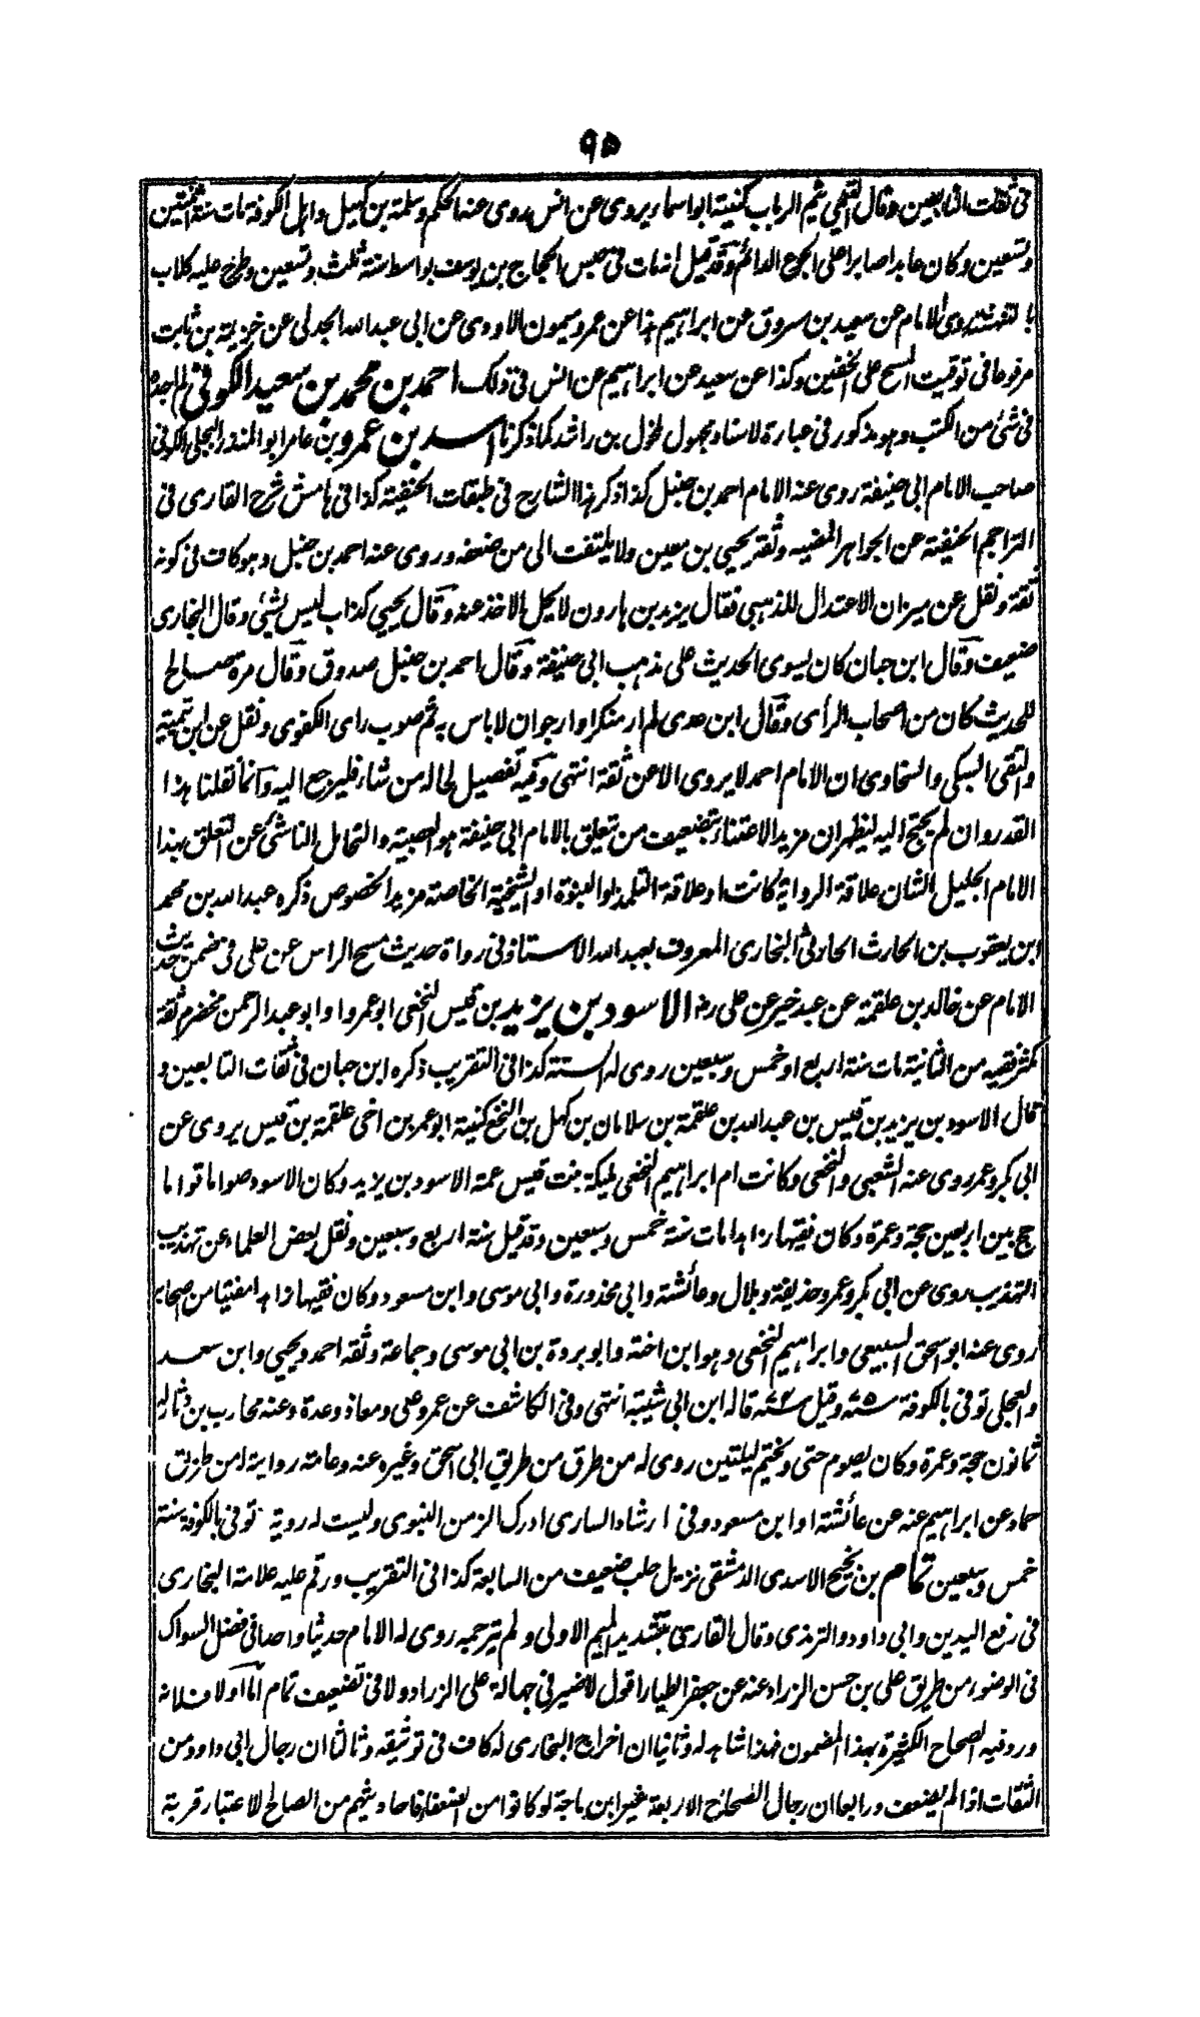 ٩٥
فى ثقات التابعين وقال التيمى تيم الرباب كنيته ابو اسماء يروى عن انس روى عنه الحكم وسلمة بن كهيل واهل الكوفة مات سنة اثنتين
وتسعين وكان عابدا صابرا على الجوع الدائم وقد قيل انه مات فى حبس الحجاج بن يوسف بواسط سنة ثلث وتسعين وطرح عليه كلاب
روى الامام عن سعيد بن مسروق عن ابراهيم هذا عن عمرو بن ميمون الاودى عن ابى عبد الله الجدلى عن خزيمة بن ثابت
مرفوعا فى توقيت المسح على الخفين وكذا عن سعيد عن ابراهيم عن انس فى ذلك احمد بن محمد بن سعيد الكوفى لم اجده
فى شئ من الكتب وهو مذكور فى عبارة لاسناد مجهول لمخول بن راشد كما ذكرنا اسد بن عمرو بن عامر ابو المنذر البجلى الكوفى
صاحب الامام ابى حنيفة روى عنه الامام احمد بن حنبل كذا ذكر هذا الشارح فى طبقات الحنفية كذا فى هامش شرح القارى فى
التراجم الحنفية عن الجواهر المضيه وثقه يحيى بن معين ولا يلتفت الى من ضعفه وروى عنه احمد بن حنبل وهو كاف فى كونه
ثقة ونقل عن ميزان الاعتدال للذهبى فقال يزيد بن هارون لا يحل الاخذ عنه وقال يحيى كذاب ليس بشئ وقال البخارى
ضعيف وقال ابن حبان كان يسوى الحديث على مذهب ابى حنيفة وقال احمد بن حنبل صدوق وقال مرة صالح
الحديث كان من اصحاب الرأى وقال ابن عدى لم ار منكرا وارجو ان لا باس به ثم صوب راى الكفوى ونقل عن ابن تيمية
والتقى السبكى والسخاوى ان الامام احمد لا يروى الا عن ثقة انتهى وفيه تفصيل لحاله من شاء فليرجع اليه وانما نقلنا هذا
القدر وان لم يحتج اليه ليظهر ان مزيد الاعتناء بتضعيف من تعلق بالامام ابى حنيفة هو العصبية والتحامل الناشئ عن التعلق بهذا
الامام الجليل الشان علاقة الرواية كانت او علاقة التلمذ او البنوة او الشيخية الخاصة مزيد الخصوص ذكره عبد الله بن محمد
ابن يعقوب بن الحارث الحارثى البخارى المعروف بعبد الله الاستاذ فى رواة حديث مسح الراس عن على فى ضمن حديث
الامام عن خالد بن علقمة عن عبد خير عن على رض الاسود بن يزيد بن قيس النخعى ابو عمرو او ابو عبد الرحمن مخضرم ثقة
مكثر فقيه من الثانية مات سنة اربع او خمس وسبعين روى له الستة كذا فى التقريب ذكره ابن حبان فى ثقات التابعين و
قال الاسود بن يزيد بن قيس بن عبد الله بن علقمة بن سلامان بن كهل بن النخع كنيته ابو عمر بن اخى علقمة بن قيس يروى عن
ابى بكر وعمر روى عنه الشعبى والنخعى وكانت ام ابراهيم النخعى مليكة بنت قيس عمة الاسود بن يزيد وكان الاسود صواما قواما
حج بين اربعين حجة وعمرة وكان فقيها زاهدا مات سنة خمس وسبعين وقد قيل سنة اربع وسبعين ونقل بعض العلماء عن تهذيب
التهذيب روى عن ابى بكر وعمر وحذيفة وبلال وعائشة وابى محذورة وابى موسى وابن مسعود وكان فقيها زاهدا مفتيا من صحابه
روى عنه ابو اسحق السبيعى وابراهيم النخعى وهو ابن اخته وابو بردة بن ابى موسى وجماعة وثقه احمد ويحيى وابن سعد
والعجلى توفى بالكوفة سنة ٧٥ وقيل سنة ٧٤ قاله ابن ابى شيبة انتهى وفى الكاشف عن عمر وعلى ومعاذ وعدة وعنه محارب بن دثار له
ثمانون حجة وعمرة وكان يصوم حتى ويختم ليلتين روى له من طرق من طريق ابى اسحق وغيره عنه وعامة رواية له من طريق
حماد عن ابراهيم عنه عن عائشة او ابن مسعود وفى ارشاد السارى ادرك الزمن النبوى وليست له روية توفى بالكوفة سنة
خمس وسبعين تمام بن نجيح الاسدى الدمشقى نزيل حلب ضعيف من السابعة كذا فى التقريب ورقم عليه علامة البخارى
فى رفع اليدين وابى داود والترمذى وقال القارى بتشديد الميم الاولى ولم يترجمه روى له الامام حديثا واحدا فى فضل السواك
فى الوضوء من طريق على بن حسن الزراد عنه عن جعفر الطيار اقول لا ضير فى جهالة على الزراد ولا فى تضعيف تمام اما اولا فلانه
ورد فيه الصحاح الكثيرة بهذا المضمون فهذا شاهد له وثانيا ان اخراج البخارى له كاف فى توثيقه وثالثا ان رجال ابى داود من
الثقات اذا لم يضعف ورابعا ان رجال الصحاح الاربعة غير ابن ماجة لو كانوا من الضعفاء فاحاديثهم من الصالح للاعتبار قريبة